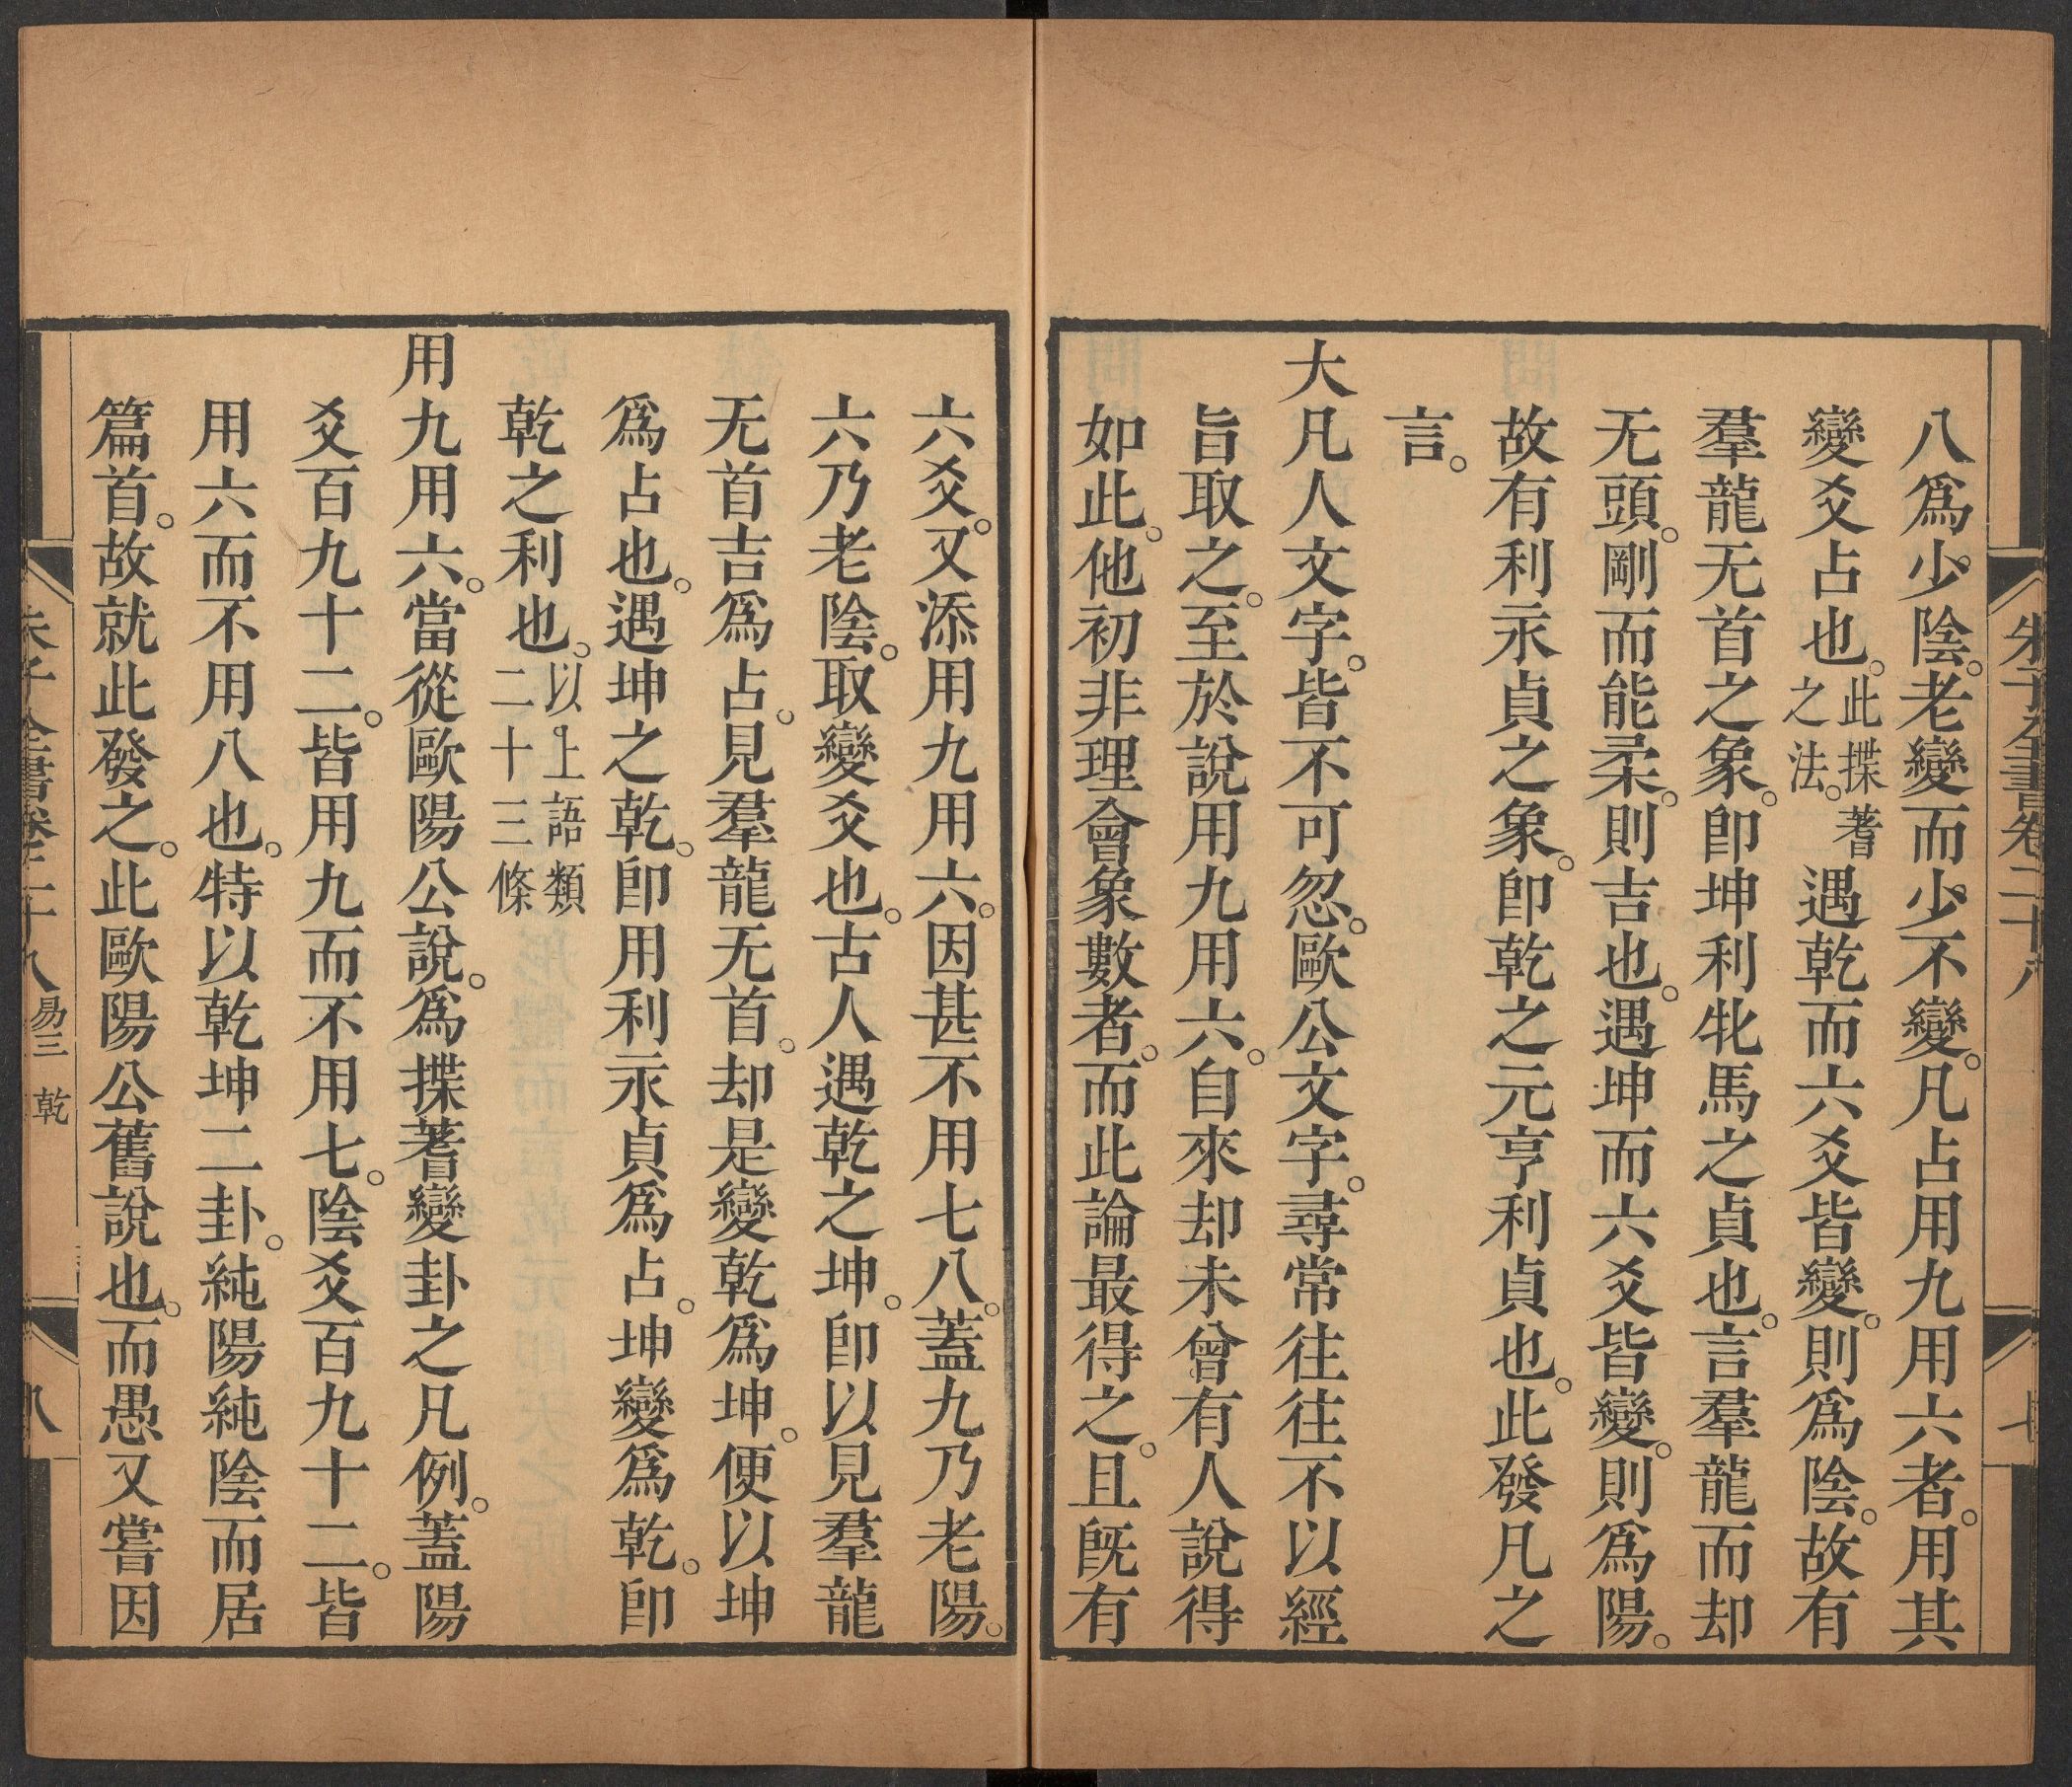 朱子全書卷二十八
七
八爲少陰。老變而少不變。凡占用九用六者。用其
變爻占也。此揲蓍之法。遇乾而六爻皆變。則爲陰。故有
羣龍无首之象。卽坤利牝馬之貞也。言羣龍而却
无頭。剛而能柔。則吉也。遇坤而六爻皆變。則爲陽。
故有利永貞之象。卽乾之元亨利貞也。此發凡之
言。
大凡人文字。皆不可忽。歐公文字。尋常往往不以經
旨取之。至於說用九用六。自來却未曾有人說得
如此。他初非理會象數者。而此論最得之。且旣有
六爻。又添用九用六。因甚不用七八。蓋九乃老陽。
六乃老陰。取變爻也。古人遇乾之坤。卽以見羣龍
无首吉爲占。見羣龍无首。却是變乾爲坤。便以坤
爲占也。遇坤之乾。卽用利永貞爲占。坤變爲乾。卽
乾之利也。以上語類二十三條
用九用六。當從歐陽公說。爲揲蓍變卦之凡例。蓋陽
爻百九十二。皆用九而不用七。陰爻百九十二。皆
用六而不用八也。特以乾坤二卦。純陽純陰而居
篇首。故就此發之。此歐陽公舊說也。而愚又嘗因
朱子全書卷二十八 易三 乾
八